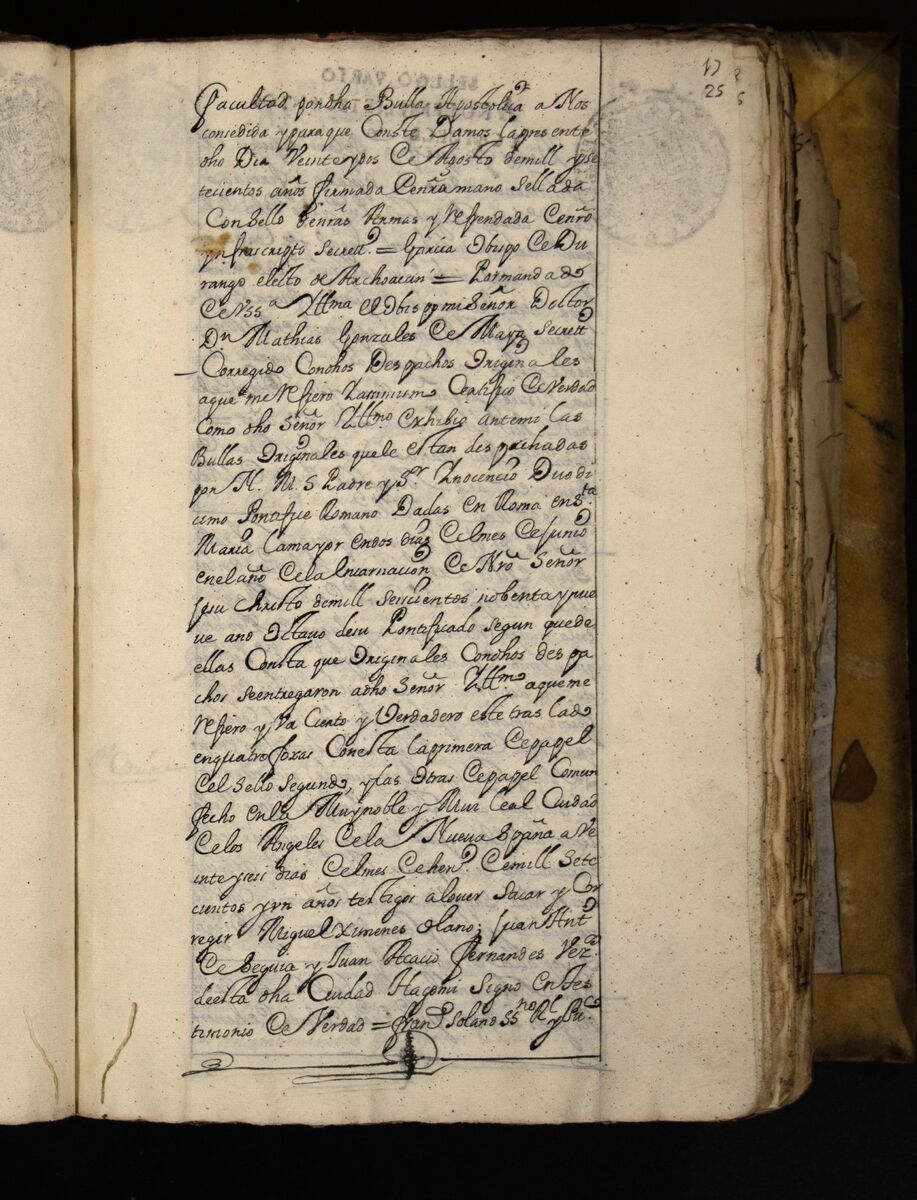 17
25
facultad por dha Bulla Apostolica a Nos
consedida y para que Conste Damos la presente
dho Dia Veinte y dos de Agosto de mill y se
tecientos años firmada de nra mano sellada
Con sello de nras Armas y Refrendada de nro
ynfrascripto Secrett.º = Garcia Obispo de Du
rango electo de Mechoacan = Por mandado
de VSSª Yllma el Obispo mi Señor Doctor
Dn Mathias Gonzales de Maya Secrettº
Corregido Con dhos Despachos Originales
a que me Refiero Y assimismo Certifico de Verdad
Como dho Señor Yllmo exhibio ante mi las
Bullas Originales que le estan despachadas
por N. M. S Padre y Sr Ynocencio Duodi
cimo Pontifice Romano Dadas en Roma en Sta
Maria la mayor en dos dias del mes de Junio
en el año de la Encarnacion de Nro Señor
Jesu Christo de mill seiscientos nobenta y nue
ve año Octavo de su Pontificado segun que de
ellas Consta que Originales Con dhos despa
chos se entregaron a dho Señor Yllmo a que me
Refiero y Va Cierto y Verdadero este traslado
en quatro foxas Con esta la primera de papel
del Sello Segundo, y las Otras de papel Comun
fecho en la Muy noble y Mui Leal Ciudad
de los Angeles de la Nueva España a Ve
inte y seis dias del mes de hen.º de mill sete
cientos y vn años testigos a lo ver sacar y Cor
regir Miguel Ximenes olano; Juan Antº
de Seguia y Juan Acacio Fernandes Vez.ºs
de esta dha Ciudad Hago mi Signo En tes
timonio de Verdad = Franco Solano SSno Rl y Puco